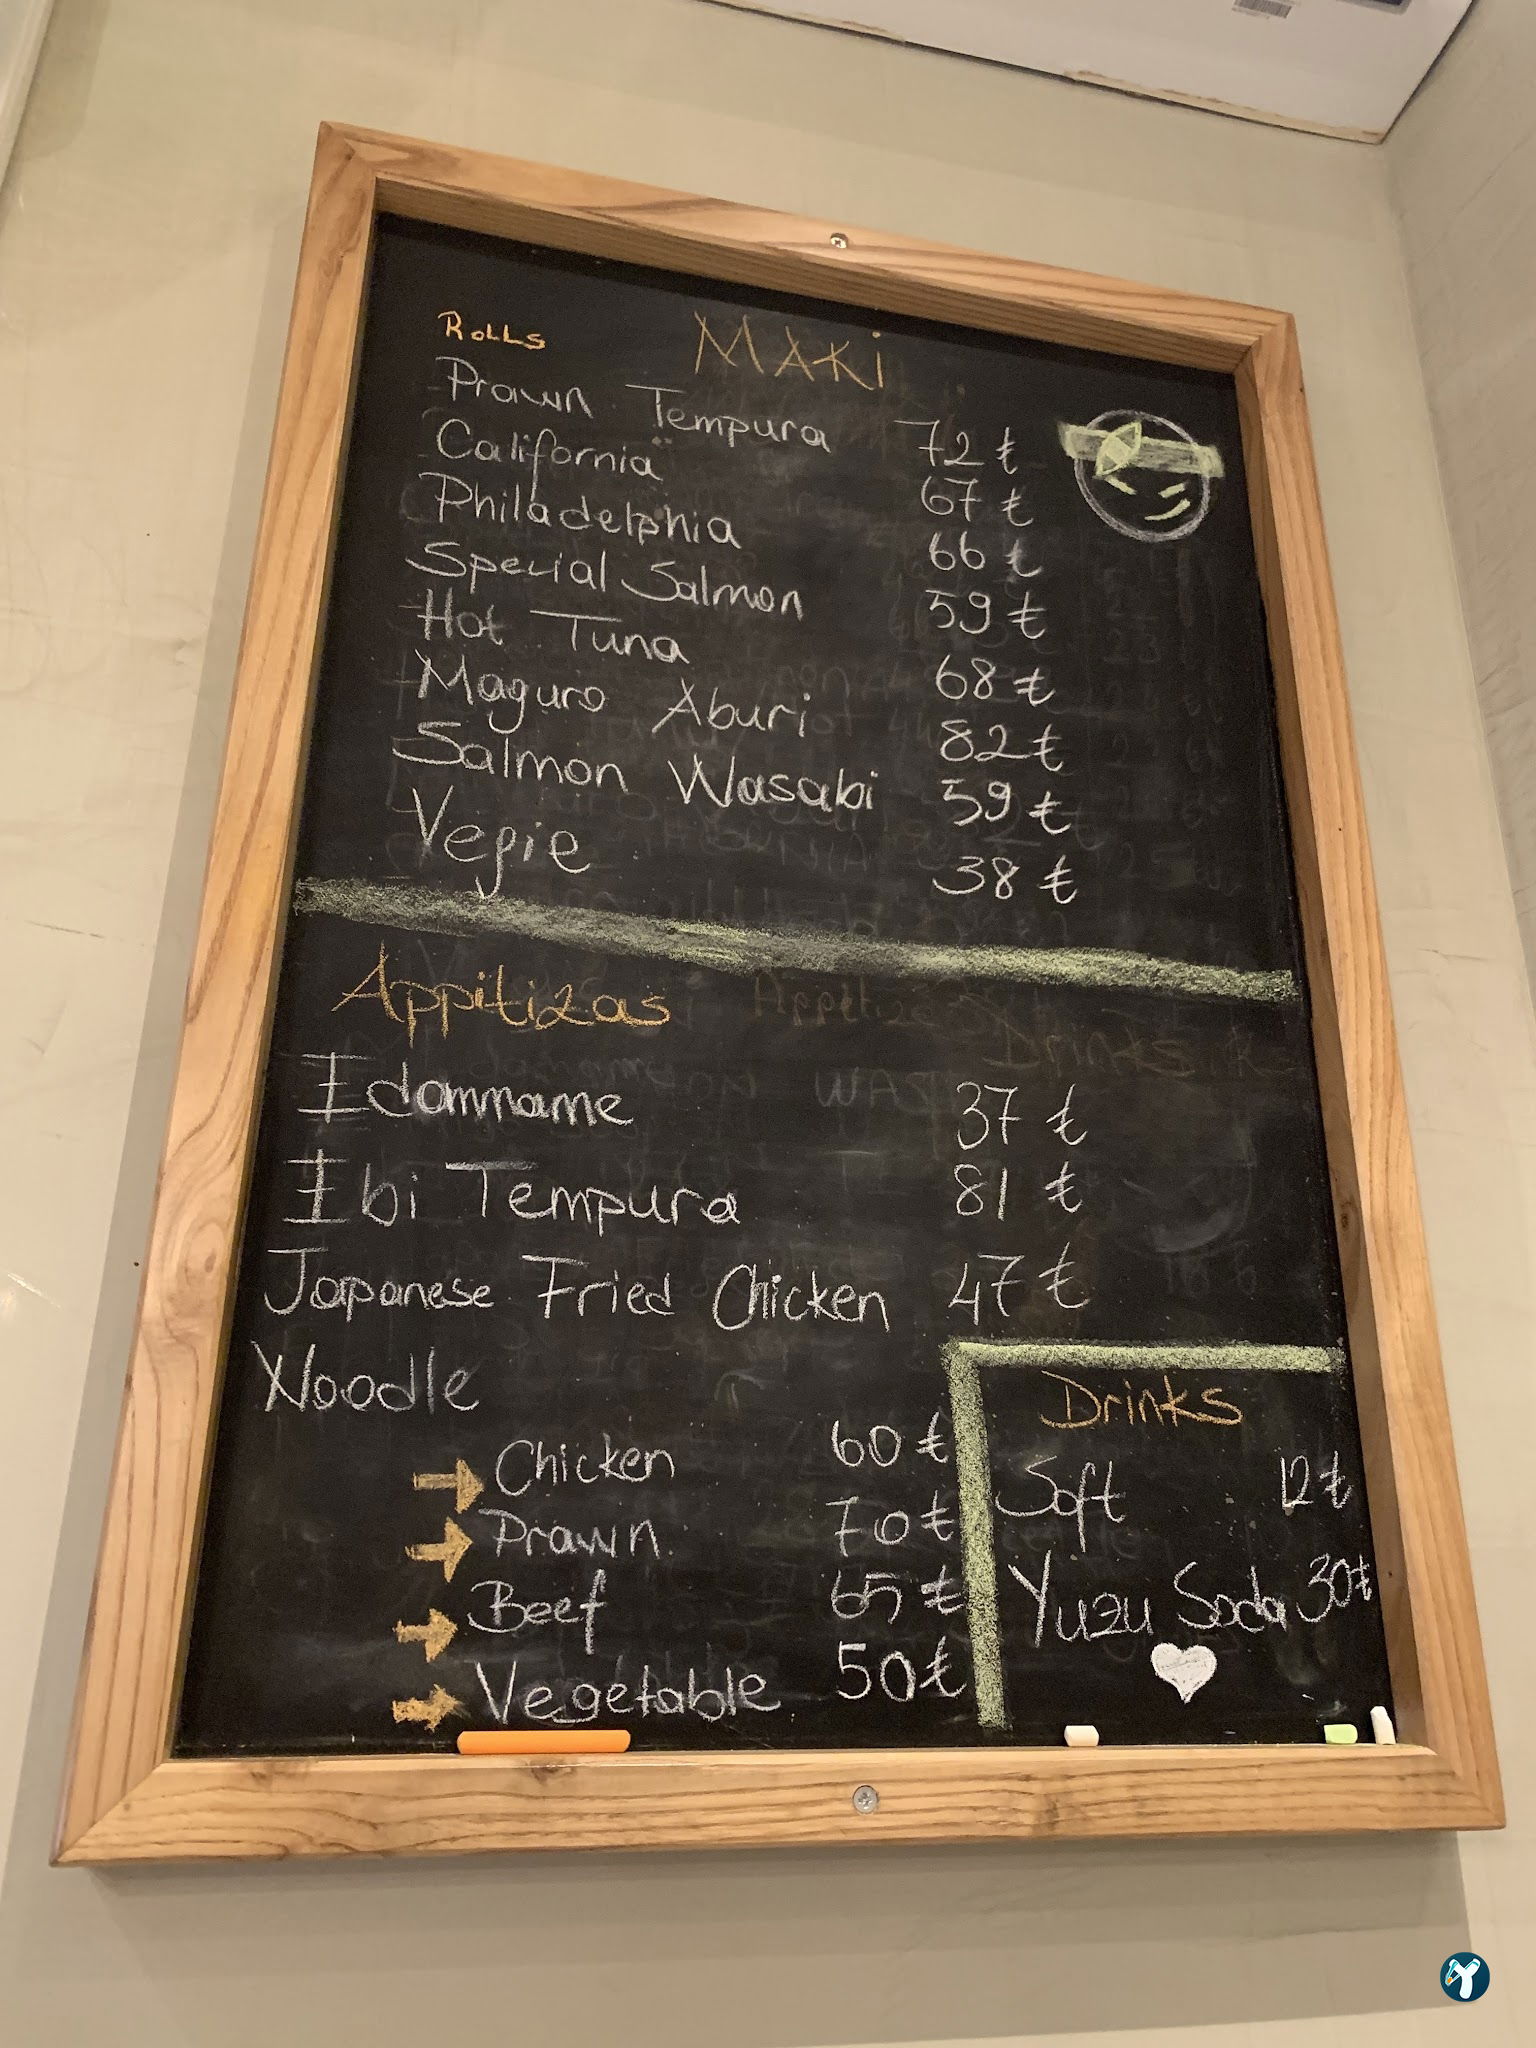 Rolls
MAKi
Prawn Tempura 72 ₺
California 67 ₺
Philadelphia 66 ₺
Special Salmon 59 ₺
Hot Tuna 68 ₺
Maguro Aburi 82 ₺
Salmon Wasabi 59 ₺
Vegie 38 ₺
Appitizas
Idammame 37 ₺
Ibi Tempura 81 ₺
Japanese Fried Chicken 47 ₺
Noodle
Chicken 60 ₺
Prawn 70 ₺
Beef 65 ₺
Vegetable 50 ₺
Drinks
Soft 12 ₺
Yuzu Soda 30 ₺